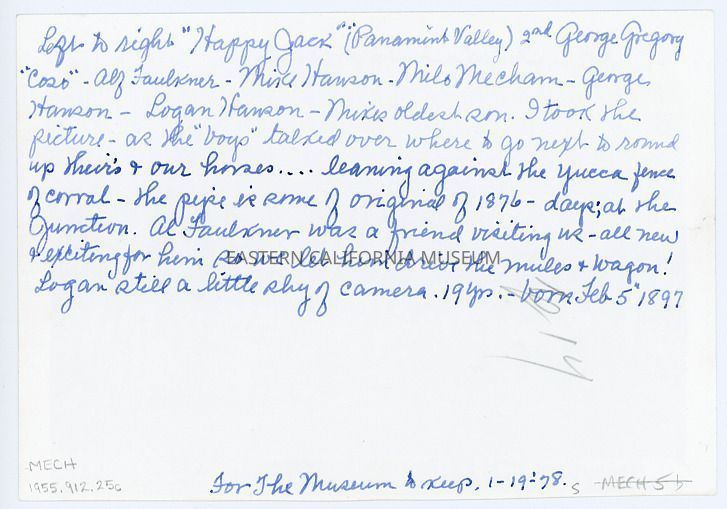 Left to right "Happy Jack" (Panamint Valley) 2nd George Gregory
"Coso" - Alf Faulkner - Mike Hanson - Milo Mecham - George
Hanson - Logan Hanson - Mike's oldest son. I took the
picture - as the "boys" talked over where to go next to round
up their's & our horses.... leaning against the yucca fence
of corral - the pipe is some of original of 1876 - days; at the
Junction. Al Faulkner was a friend visiting us - all new
& exciting for him so we let him drive the mules & wagon!
EASTERN CALIFORNIA MUSEUM
Logan still a little shy of camera. 19 yrs. - born Feb 5" 1897
MECH
1955.912.25c
For The Museum to keep, 1-19-78. s
MECH 5b